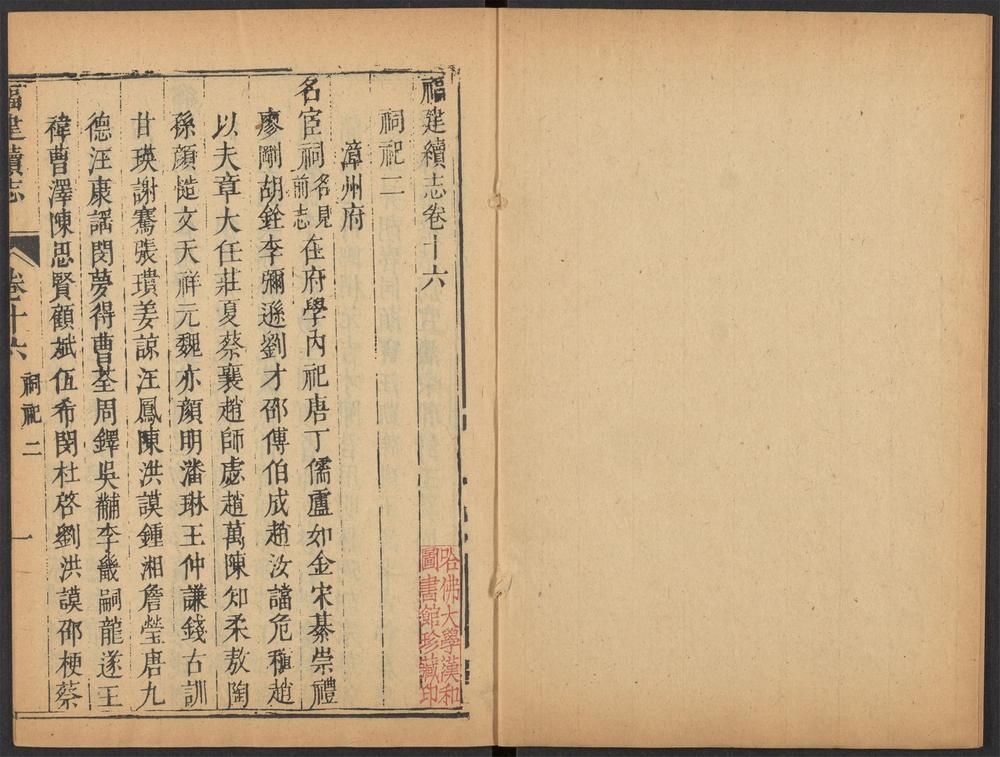 福建續志卷十六
祠祀二
漳州府
名宦祠名見前志在府學內祀唐丁儒盧如金宋綦崇禮
廖剛胡銓李彌遜劉才邵傅伯成趙汝讜危稹趙
以夫章大任莊夏蔡襄趙師虙趙萬陳知柔敖陶
孫顏慥文天祥元魏亦顏明潘琳王仲謙錢古訓
甘瑛謝騫張璝姜諒汪鳳陳洪謨鍾湘詹瑩唐九
德汪康謠閔夢得曹荃周鐸吳黼李畿嗣龍遂王
禕曹澤陳思賢顧斌伍希閔杜啓劉洪謨邵梗蔡
福建續志
卷十六
祠祀二
一
哈佛大學漢和
圖書館珍藏印